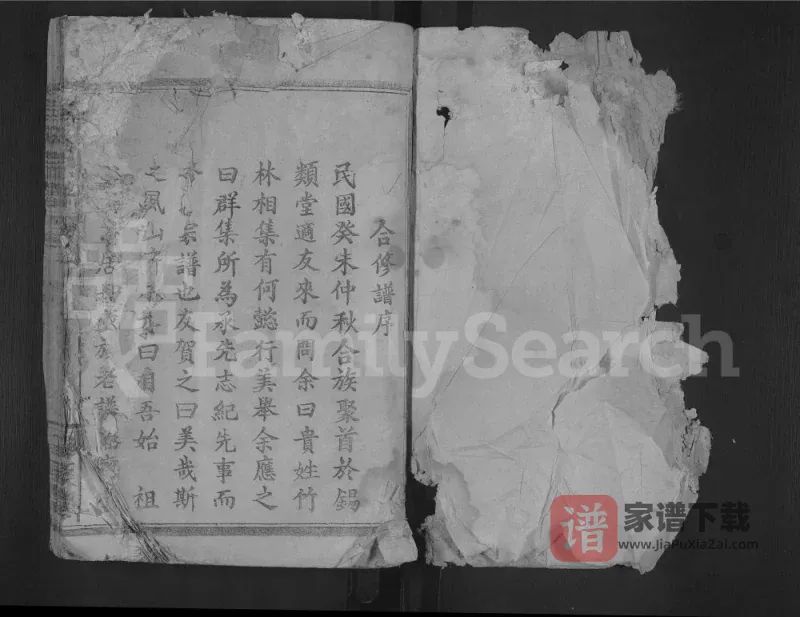 合修譜序
民國癸未仲秋合族聚首於錫
類堂適友來而問余曰貴姓竹
林相集有何懿行美舉余應之
曰群集所為承先志紀先事而
宗譜也友賀之曰美哉斯
之鳳山曰自吾始祖
族老謀
FamilySearch
谱
家谱下载
www.JiaPuXiaZai.com